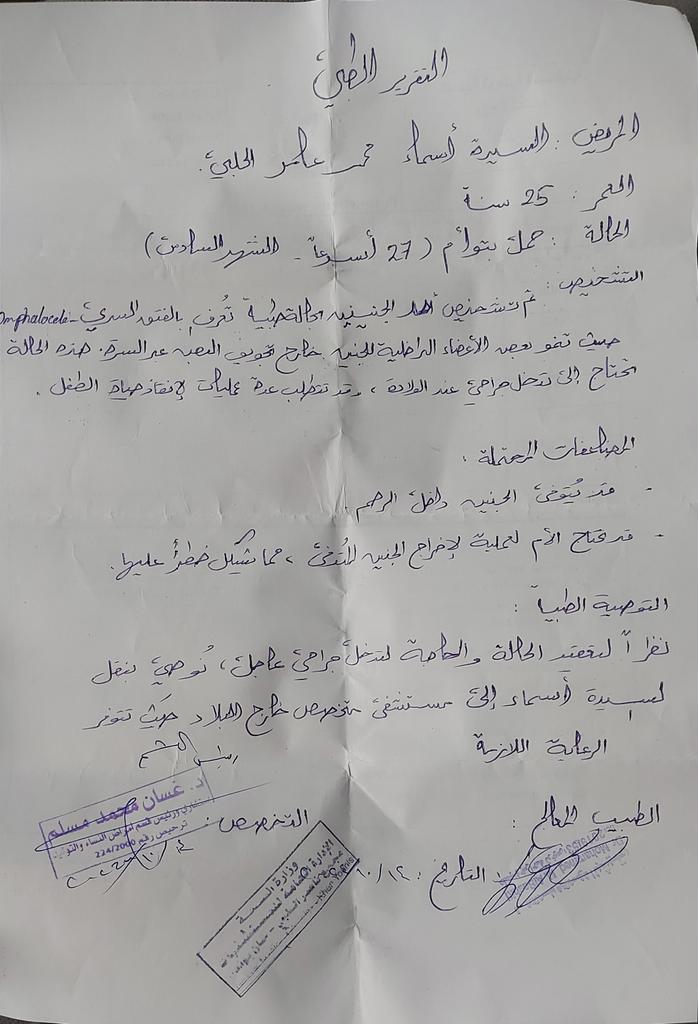 التقرير الطبي
المريض : السيدة أسماء محمد عامر الحلبي.
العمر : 25 سنة
الحالة : حمل بتوأم (27 أسبوعاً - الشهر السادس)
التشخيص :
تم تشخيص أحد الجنينين بحالة طبية تُعرف بالفتق السري - Omphalocele
حيث تنمو بعض الأعضاء الداخلية للجنين خارج تجويف البطن عبر السرة. هذه الحالة
تحتاج إلى تدخل جراحي عند الولادة ، وقد تتطلب عدة عمليات لإنقاذ حياة الطفل .
المضاعفات المحتملة :
- قد يُتوفى الجنين داخل الرحم .
- قد تحتاج الأم لعملية لإخراج الجنين المُتوفى ، مما يشكل خطراً عليها .
التوصية الطبية :
نظراً لتعقيد الحالة والحاجة لتدخل جراحي عاجل ، نُوصي بنقل
السيدة أسماء إلى مستشفى متخصص خارج البلاد حيث تتوفر
الرعاية اللازمة
رئيس القسم
الطبيب المعالج :
التخصص :
د. غسان محمد مسلم
ترخيص رقم 224/2000
التاريخ : ١٠/١٤
وزارة الصحة